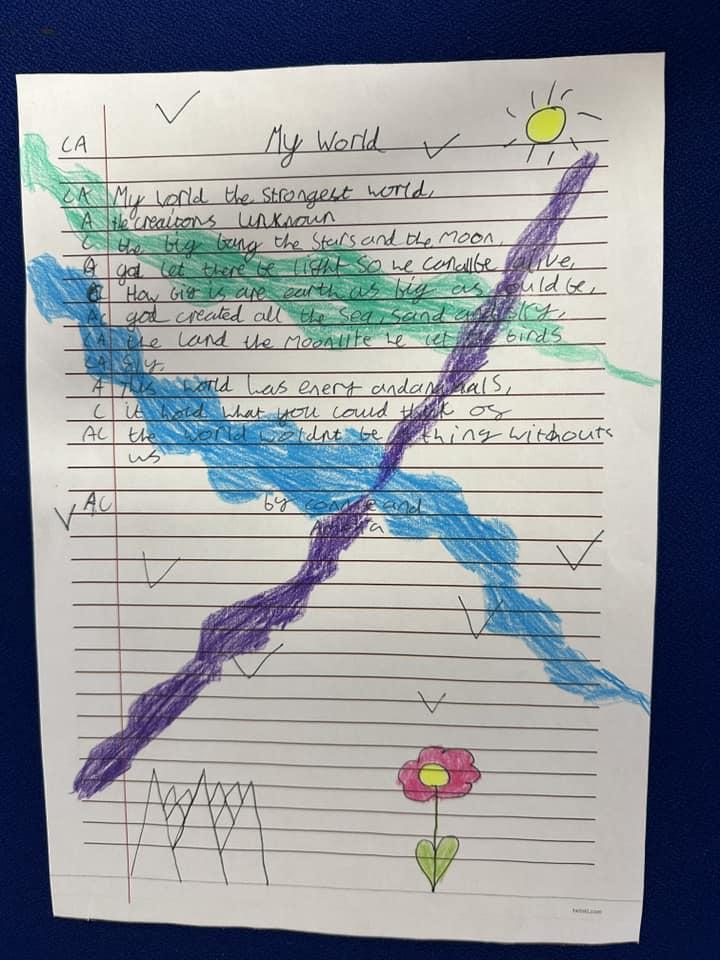 CA My World
CA My world the strongest world,
A the creaitons unknown
C the big bang the stars and the moon,
A god let there be light so we can all be alive,
C How big is are earth as big as could be,
AC god created all the sea, sand and sky,
CA the land the moonlite he let the birds
CA fly.
A this world has every and animals,
C it hold what you could think of
AC the world woldnt be a thing withouts
us
AC by connie and
Amelia
twinkl.com